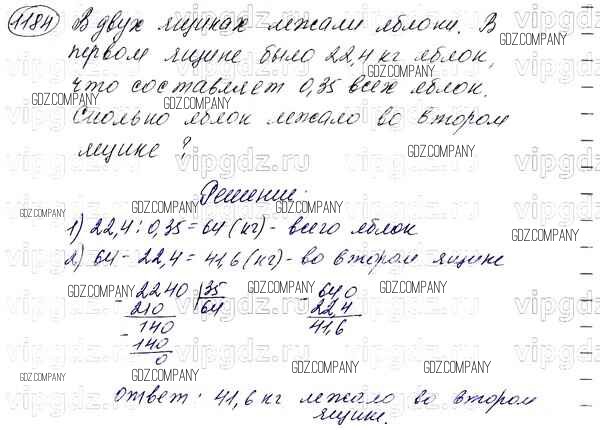 1184 В двух ящиках лежали яблоки. В
первом ящике было 22,4 кг яблок,
что составляет 0,35 всех яблок.
Сколько яблок лежало во втором
ящике?
Решение:
1) 22,4 : 0,35 = 64 (кг) - всего яблок
2) 64 - 22,4 = 41,6 (кг) - во втором ящике
- 2240 | 35
210 64
- 140
140
0
- 64,0
22,4
41,6
Ответ: 41,6 кг лежало во втором
ящике.
GDZ.COMPANY
vipgdz.ru